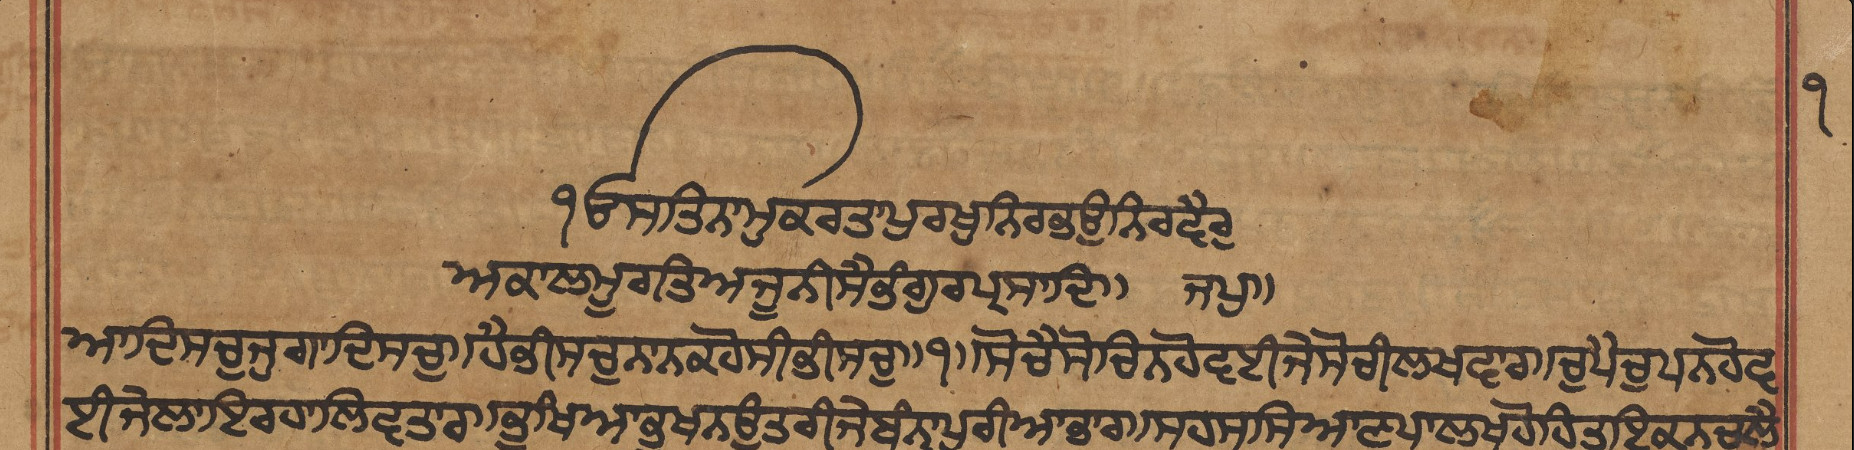 ੧
ੴਸਤਿਨਾਮੁਕਰਤਾਪੁਰਖੁਨਿਰਭਉਨਿਰਵੈਰੁ
ਅਕਾਲਮੂਰਤਿਅਜੂਨੀਸੈਭੰਗੁਰਪ੍ਰਸਾਦਿ॥ ਜਪੁ॥
ਆਦਿਸਚੁਜੁਗਾਦਿਸਚੁ॥ਹੈਭੀਸਚੁਨਾਨਕਹੋਸੀਭੀਸਚੁ॥੧॥ਸੋਚੈਸੋਚਿਨਹੋਵਈਜੇਸੋਚੀਲਖਵਾਰ॥ਚੁਪੈਚੁਪਨਹੋਵ
ਈਜੇਲਾਇਰਹਾਲਿਵਤਾਰ॥ਭੁਖਿਆਭੁਖਨਉਤਰੀਜੇਬੰਨਾਪੁਰੀਆਭਾਰ॥ਸਹਸਸਿਆਣਪਾਲਖਹੋਹਿਤਇਕਨਚਲੈ